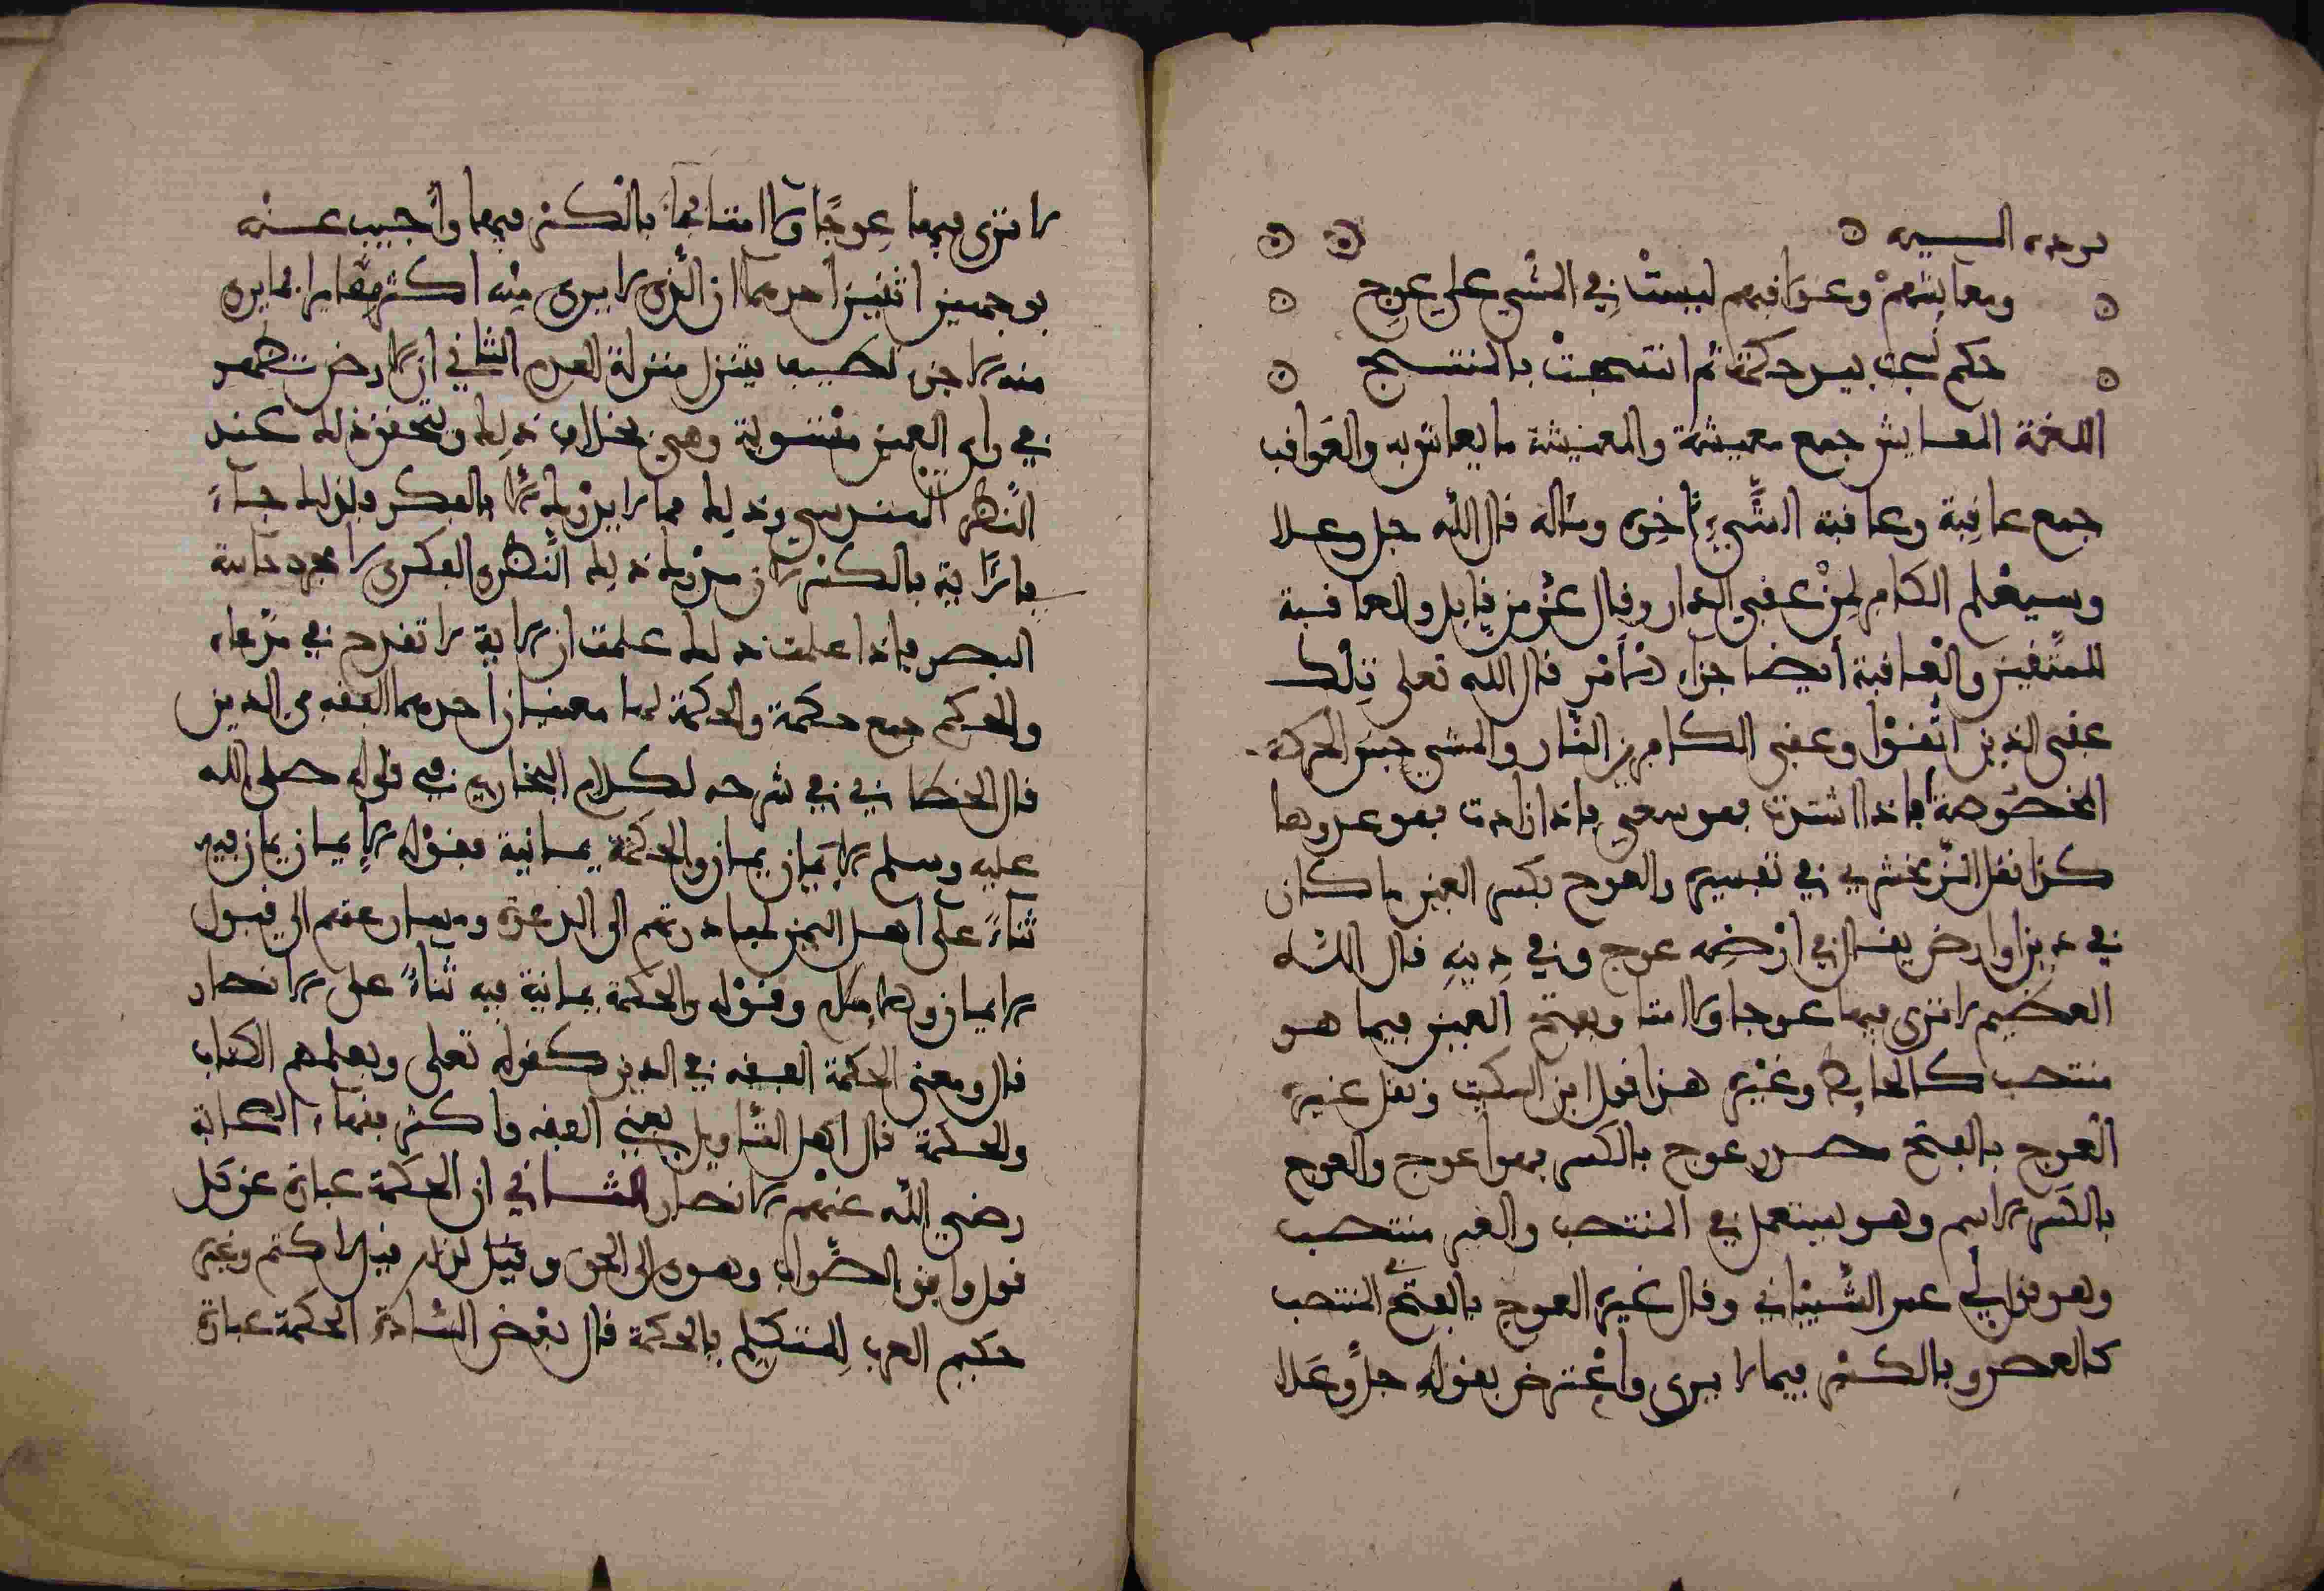 ومعايشهم وعواقبهم ليست في المشي على عوج
حكم نسجت بيد حكمة ثم انتسجت بالمنتسج
اللغة المعايش جمع معيشة والمعيشة ما يعاش به والعواقب
جمع عاقبة وعاقبة الشيء ءاخره ومئاله قال الله جل وعلا
وسيعلم الكافر لمن عقبى الدار وقال عز من قايل والعاقبة
للمتقين والعاقبة أيضا جزاء الامر قال الله تعلى تلك
عقبى الذين اتقوا وعقبى الكافرين النار والمشي جنس الحركة
المخصوصة فاذا اشتدت فهو سعي فاذا زادت فهو عدو وها
كذا نقل الزمخشري في تفسيره والعوج بكسر العين ما كان
في دين او ارض يقال في ارضه عوج وفي دينه قال الله
العظيم لا ترى فيها عوجا ولا امتا وبفتح العين فيما هو
منتصب كالحايط وغيره هذا قول ابن السكيت ونقل غيره
العوج بالفتح مصدر عوج بالكسر فهو اعوج والعوج
بالكسر الاسم وهو يستعمل في المنتصب والغير منتصب
وهو قول أبي عمر الشيباني وقال غيره العوج بالفتح في المنتصب
كالعصى وبالكسر فيما لا يرى واعترض بقوله جل وعلا
لا ترى فيها عوجا ولا امتا فإنها بالكسر فيها وأجيب عنه
بوجهين اثنين احدهما ان الذي لا يرى منه اكثر مقدارا مما يرى
منه لاجزء لطيف يتنزل منزلة العدم الثاني ان الارض تظهر
في راي العين مستوية وهي بخلاف ذلك ويتحقق ذلك عند
النظر الهندسي وذلك مما لا يدرك الا بالفكر فلذلك جاء
فالاية بالكسر لان مدرك ذلك النظر الفكري لا مجرد حاسة
البصر فاذا علمت ذلك علمت ان الاية لا تقدح في مدعاه
والحكم جمع حكمة والحكمة لها معنيان احدهما الفقه في الدين
قال الخطابي في شرحه لكلام البخاري في قوله صلى الله
عليه وسلم الايمان يمان والحكمة يمانية فقوله الايمان يمان فيه
ثناء على اهل اليمن لمبادرتهم الى الدعوة ومسارعتهم الى قبول
الايمان والاسلام وقوله والحكمة يمانية فيه ثناء على الانصار
قال ومعنى الحكمة الفقه في الدين كقوله تعلى ويعلمهم الكتاب
والحكمة قال اهل التاويل يعني الفقه واكثر فقهاء الصحابة
رضي الله عنهم الانصار الثاني ان الحكمة عبارة عن كل
قول وافق الصواب وهدى الى الحق وقيل لذلك قيل لاكثم وغيره
حكيم العرب لتكلم بالحكمة قال بعض السادة الحكمة عبارة